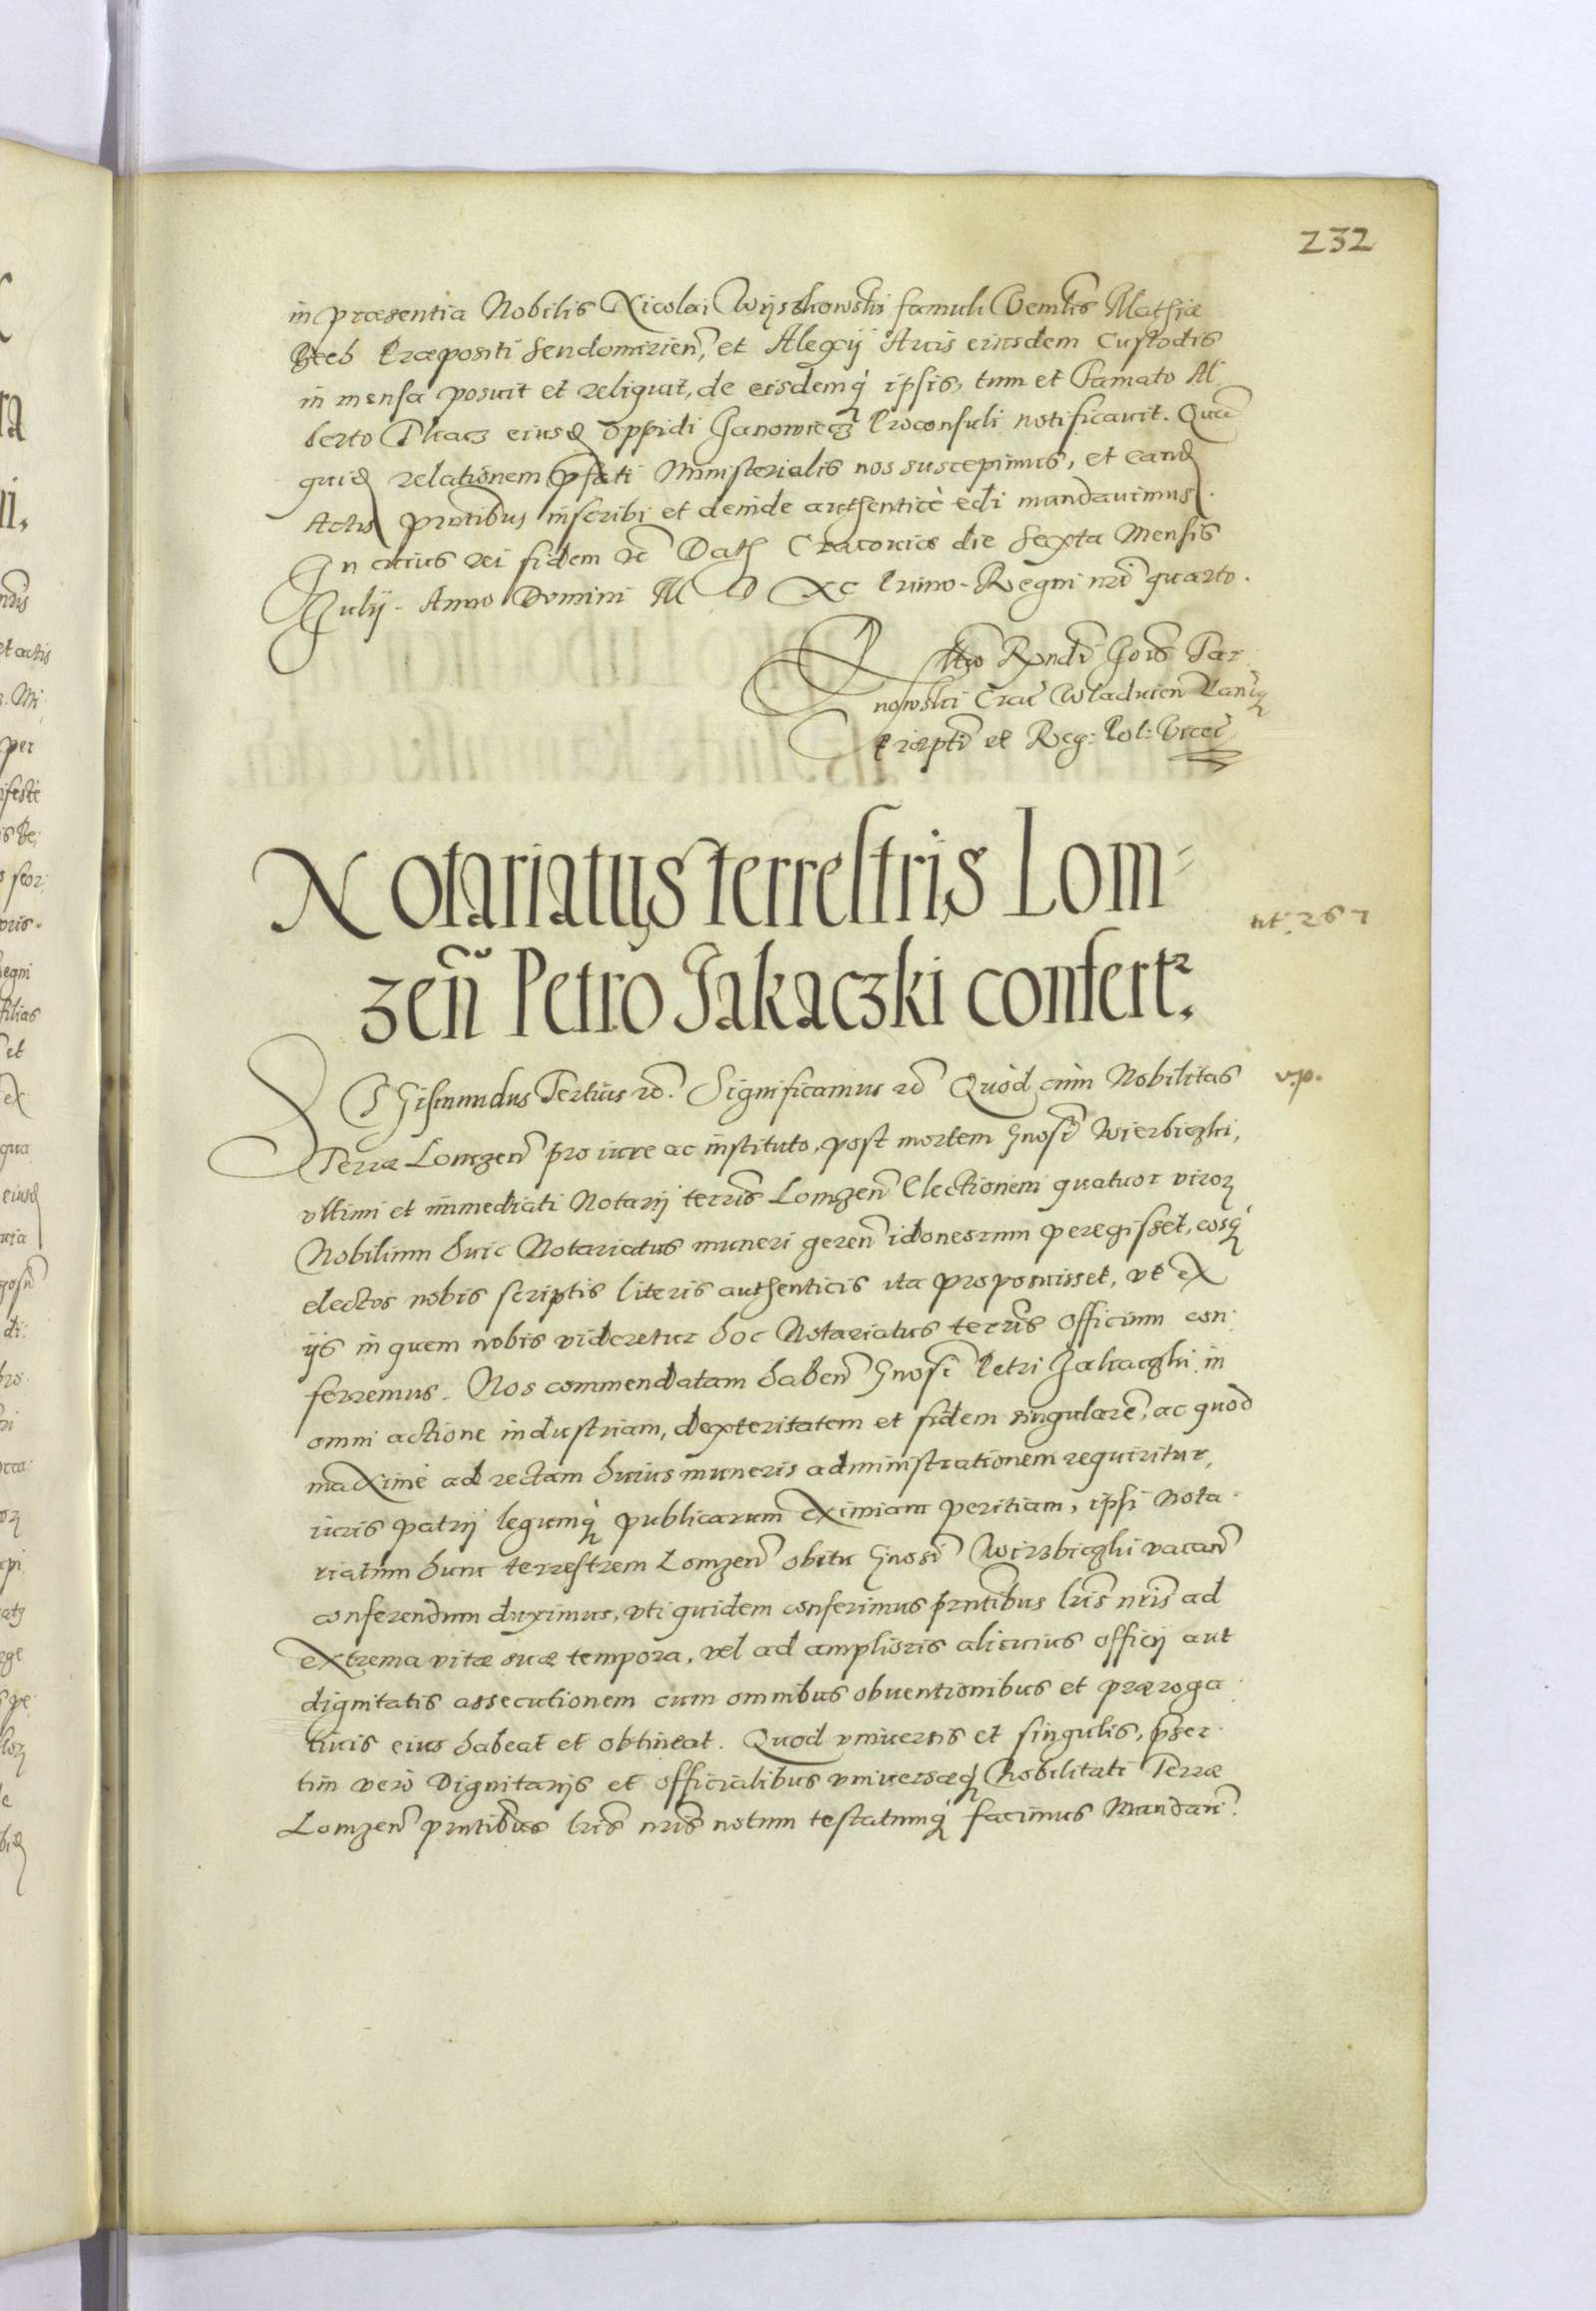 232
in præsentia Nobilis Nicolai Wyszkowskii famuli Venrlis Mathiæ
Præpositi Sendomirien, et Alexij Arcis eiusdem Custodis
in mensa posuit et reliquit, de eisdemq ipsis, tum et Famato Al
berto Tkacz eiusd oppidi Janowiecz Proconsuli notificavit. Quā
quid relationem pfati Ministerialis nos suscepimus, et eand
Actis pntibus inscribi et deinde authenticè edi mandavimus.
In cuius rei fidem etc Dat Cracoviæ die Sexta Mensis
Julij. Anno Domini M D XC Primo. Regni nri quarto.
Rndi Jois Tar
nowski Crac Wladvien Lanciq
præpti et Reg: Pol: Vicec
Notariatus terrestris Lom
zeñ Petro Jakaczki confert.
nt. 267
v.p.
Sigismundus Tertius etc. Significamus etc Quòd cùm Nobilitas
Terræ Lomzen pro iure ac instituto, post mortem Gnosi Wierbiczki,
ultimi et immediati Notarij terris Lomzen Electionem quatuor viror
Nobilium huic Notariatus muneri geren idoneorum peregisset, eosq
electos nobis scriptis literis authenticis ita proposuisset, vt ex
ijs in quem nobis videretur hoc Notariatus terris officium con
ferremus. Nos commendatam haben Gnosi Petri Jakaczki in
omni actione industriam, dexteritatem et fidem singularē, ac quod
maximè ad rectam huius muneris administrationem requiritur,
iuris patrij legumq publicarum eximiam peritiam, ipsi Nota
riatum hunc terrestrem Lomzen obitu Gnosi Wirzbiczki vacan
conferendum duximus, vti quidem conferimus pntibus lris nris ad
extrema vitæ suæ tempora, vel ad amplioris alicuius officij aut
dignitatis assecutionem cum omnibus obventionibus et præroga
tivis eius habeat et obtineat. Quod vniversis et singulis, pser
tim verò Dignitarijs et officialibus vniversæq Nobilitati Terræ
Lomzen pntibus lris nris notum testatumq facimus Mandañ.